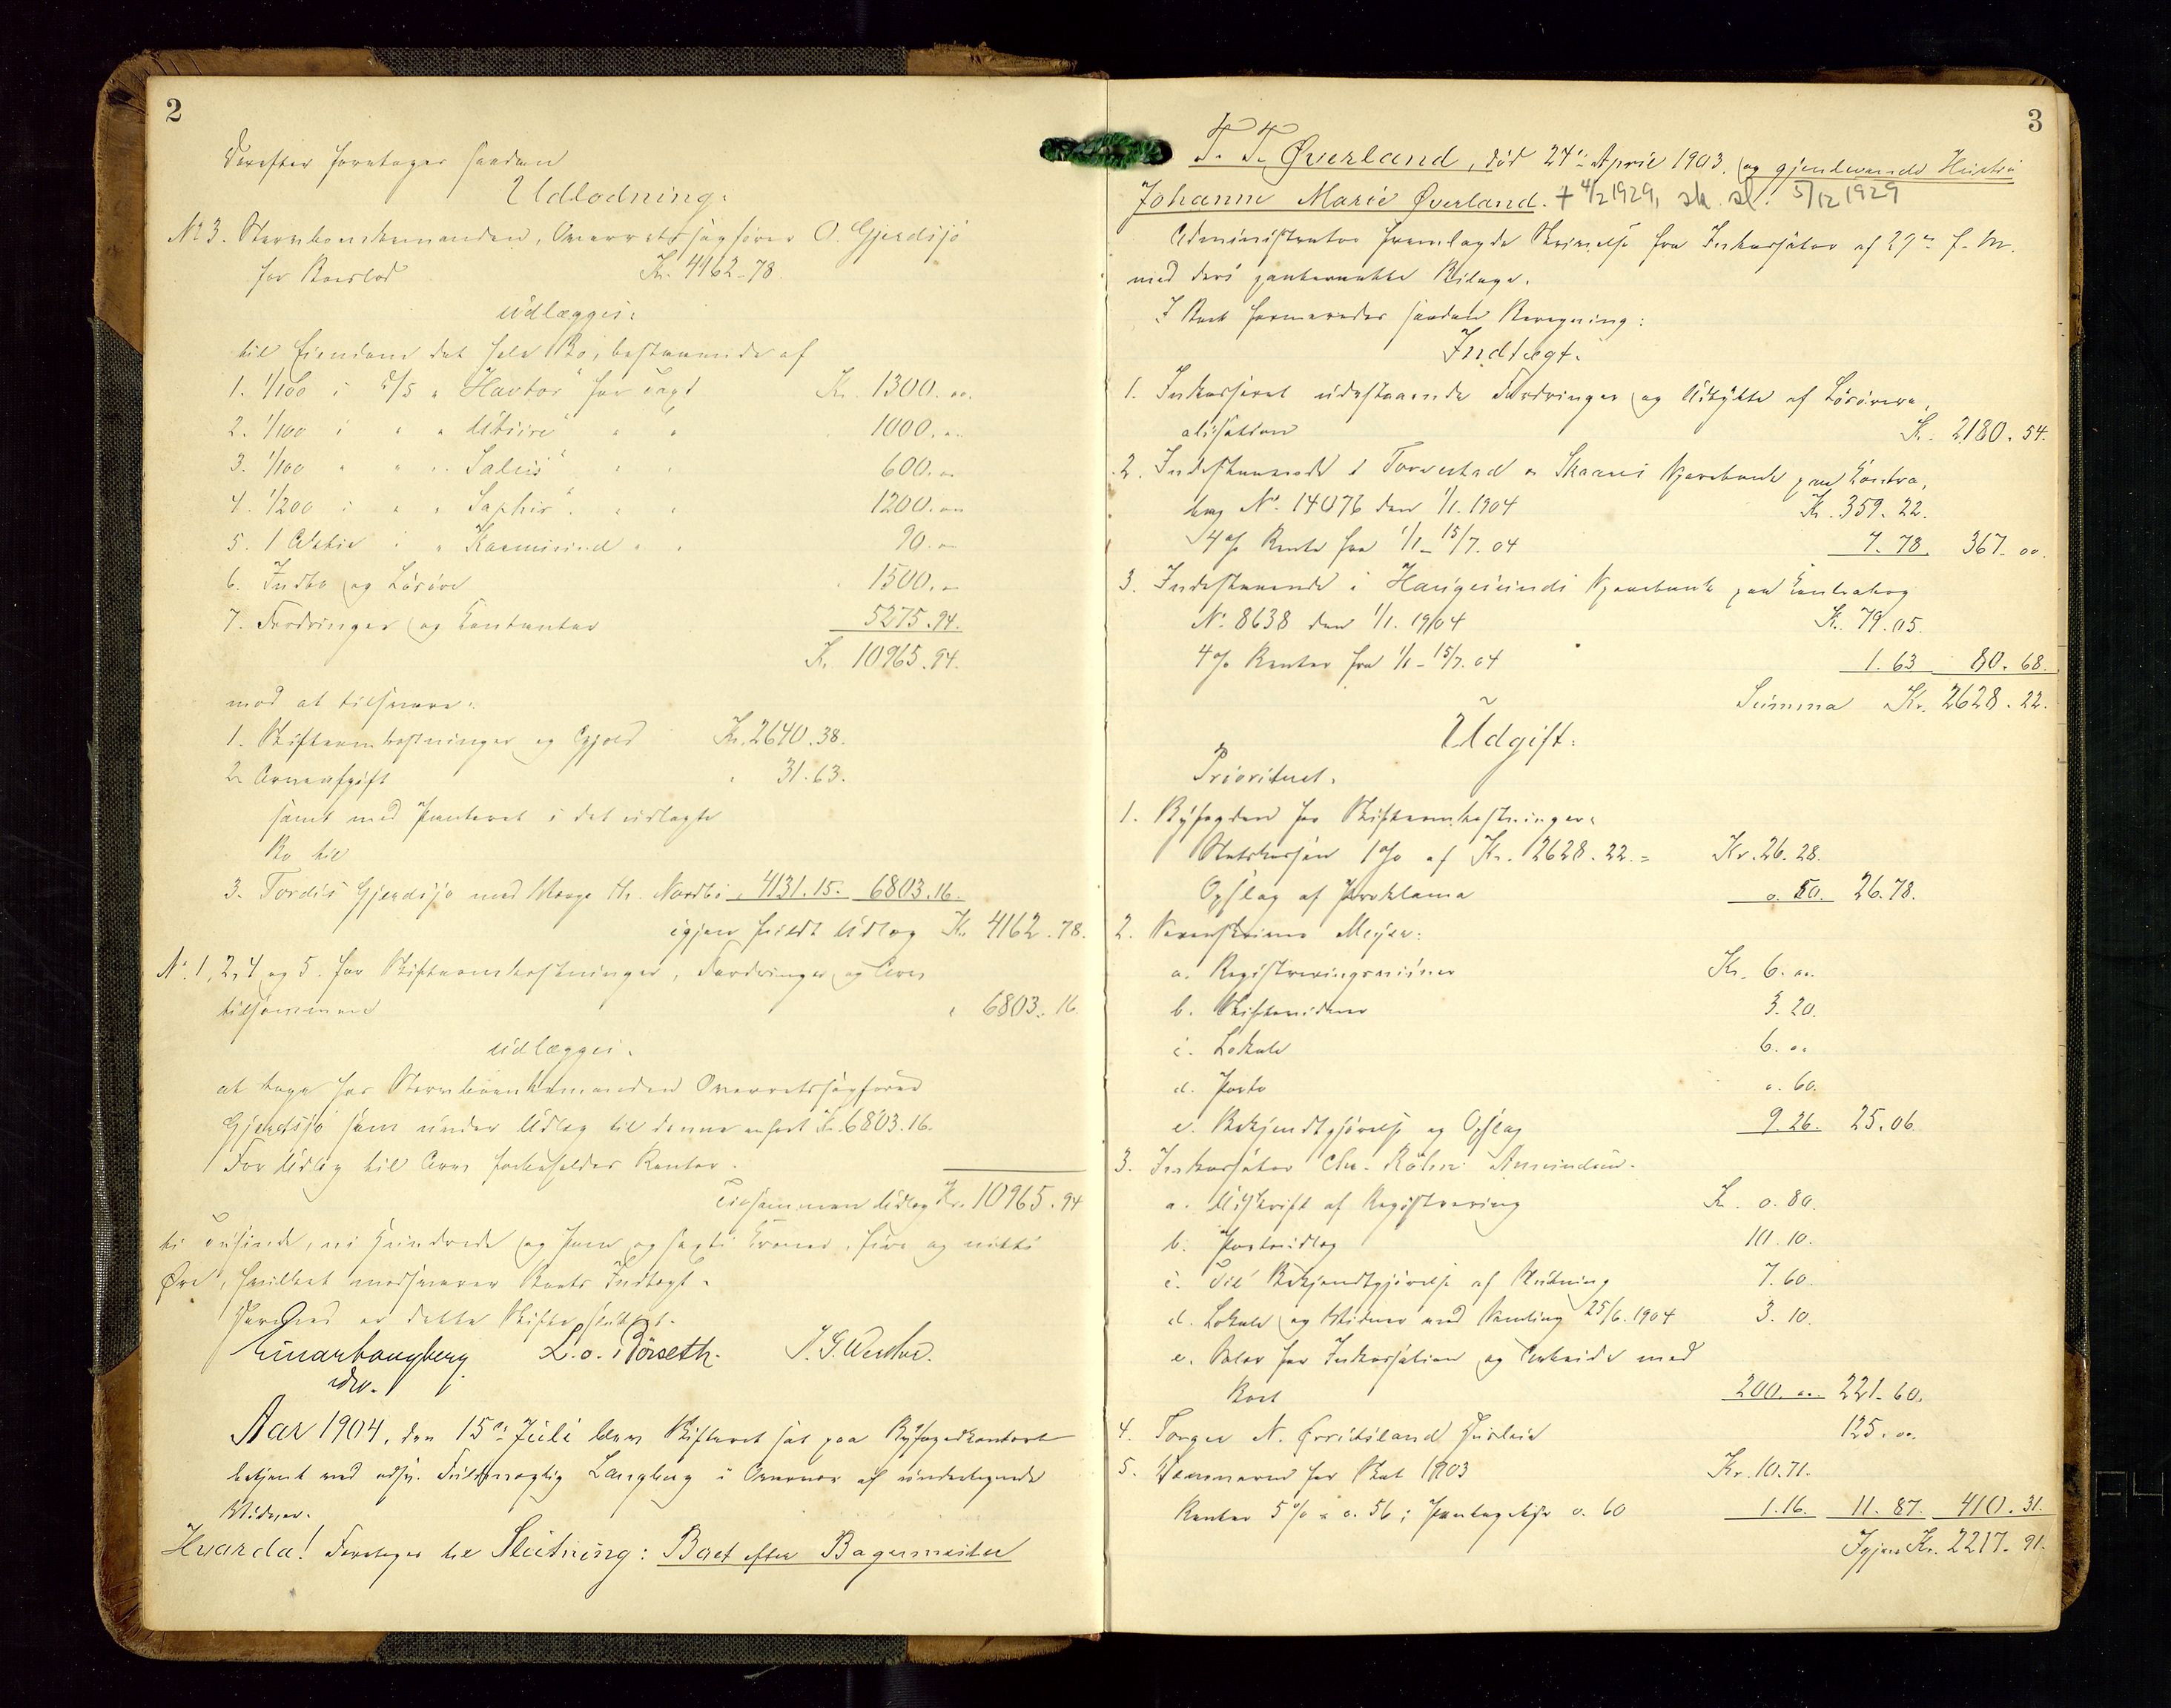 2
Derefter foretages saadan
Udlodning:
No 3. Stervboenkemanden, Overretssagfører O. Gjerdsjø
for Boeslod Kr. 4162.78.
udlægges:
til Eiendom det hele Bo, bestaaende af
1. 1/100 i D/S "Havtor" for Taxt Kr. 1300.00.
2. 1/100 i " " Utsire" " " 1000.00
3. 1/100 " " " Salus" " " 600.00
4. 1/200 i " " Saphir". " " 1200.00
5. 1 Aktie i " Karmsund " " 90.00
6. Indbo og Løsøre 1500.00
7. Fordringer og Contanter 5275.94.
Kr. 10965.94.
mod at tilsvare:
1. Skifteomkostninger og Gjæld Kr. 2640.38.
2. Arveafgift " 31.63.
samt med Panteret i det udlagte
Bo til
3. Tordis Gjerdsjø med Værge Th. Nordbø " 4131.15. 6803.16.
igjen fuldt Udlæg Kr. 4162.78.
No. 1, 2, 4 og 5. for Skifteomkostninger, Fordringer og Arv
tilsammen " 6803.16.
udlægges:
at tage hos Stervboenkemanden Overretssagfører
Gjerdsjø som under Udlæg til denne anført Kr. 6803.16.
For Udlæg til Arv forbeholdes Renter.
Tilsammen Udlæg Kr. 10965.94
ti Tusinde, ni Hundrede og fem og sexti Kroner, fire og nitti
Øre, hvilket modsvarer Boets Indtægt.
Dermed er dette Skifte sluttet.
Einar Langberg L. O. Børseth. J. G. Wester.
edsv.
Aar 1904, den 15de Juli blev Skifteret sat paa Byfogedkontoret
betjent ved edsv. Fuldmægtig Langberg i Overvær af undertegnede
Vidner.
Hvorda! Foretoges til Slutning: Boet efter Bagermester
3
T. T. Øverland, død 24de April 1903. og gjenlevende Hustru
Johanne Marie Øverland. + 4/2 1929, sk. sl. 5/12 1929
Administrator fremlagde Skrivelse fra Inkassator af 29de f. M.
med deri paaberaabte Bilage.
I Boet formeredes saadan Beregning:
Indtægt.
1. Inkasseret udestaaende Fordringer og Udbytte af Løsørere,
alisation Kr. 2180.54.
2. Indestaaende i Torvestad & Skaare Sparebank paa Contra,
bog No. 14076 den 1/1. 1904 Kr. 359.22.
4% Rente fra 1/1 - 15/7. 04 7.78. 367.00.
3. Indestaaende i Haugesunds Sparebank paa Contrabog
No. 8638 den 1/1. 1904 Kr. 79.05.
4% Renter fra 1/1 - 15/7. 04 1.63 80.68.
Summa Kr. 2628.22.
Udgift:
Prioritaet.
1. Byfogden for Skifteomkostninger:
Statskassen 1% af Kr. 2628.22. = Kr. 26.28.
Opslag af Proklama 0.50. 26.78.
2. Sorenskriver Meyer:
a. Registreringsvidner Kr. 6.00.
b. Skiftevidner 3.20.
c. Lokale 6.00
d. Porto 0.60.
e. Bekjendtgjørelse og Opslag 9.26. 25.06.
3. Inkassator Chr. Røhr Amundsen.
a. Udskrift af Registrering Kr. 0.80.
b. Portoudlæg 10.10.
c. Til Bekjendtgjørelse af Slutning 7.60.
d. Lokale og Vidner ved Samling 25/6. 1904 3.10.
e. Salær for Inkassation og Arbeide med
Boet 200.00. 221.60.
4. Torger N. Ørvitsland Husleie 125.00.
5. Kemneren for Skat 1903 Kr. 10.71.
Renter 5% = 0.56; Pantegebyr 0.60 1.16. 11.87. 410.31.
Igjen Kr. 2217.91.